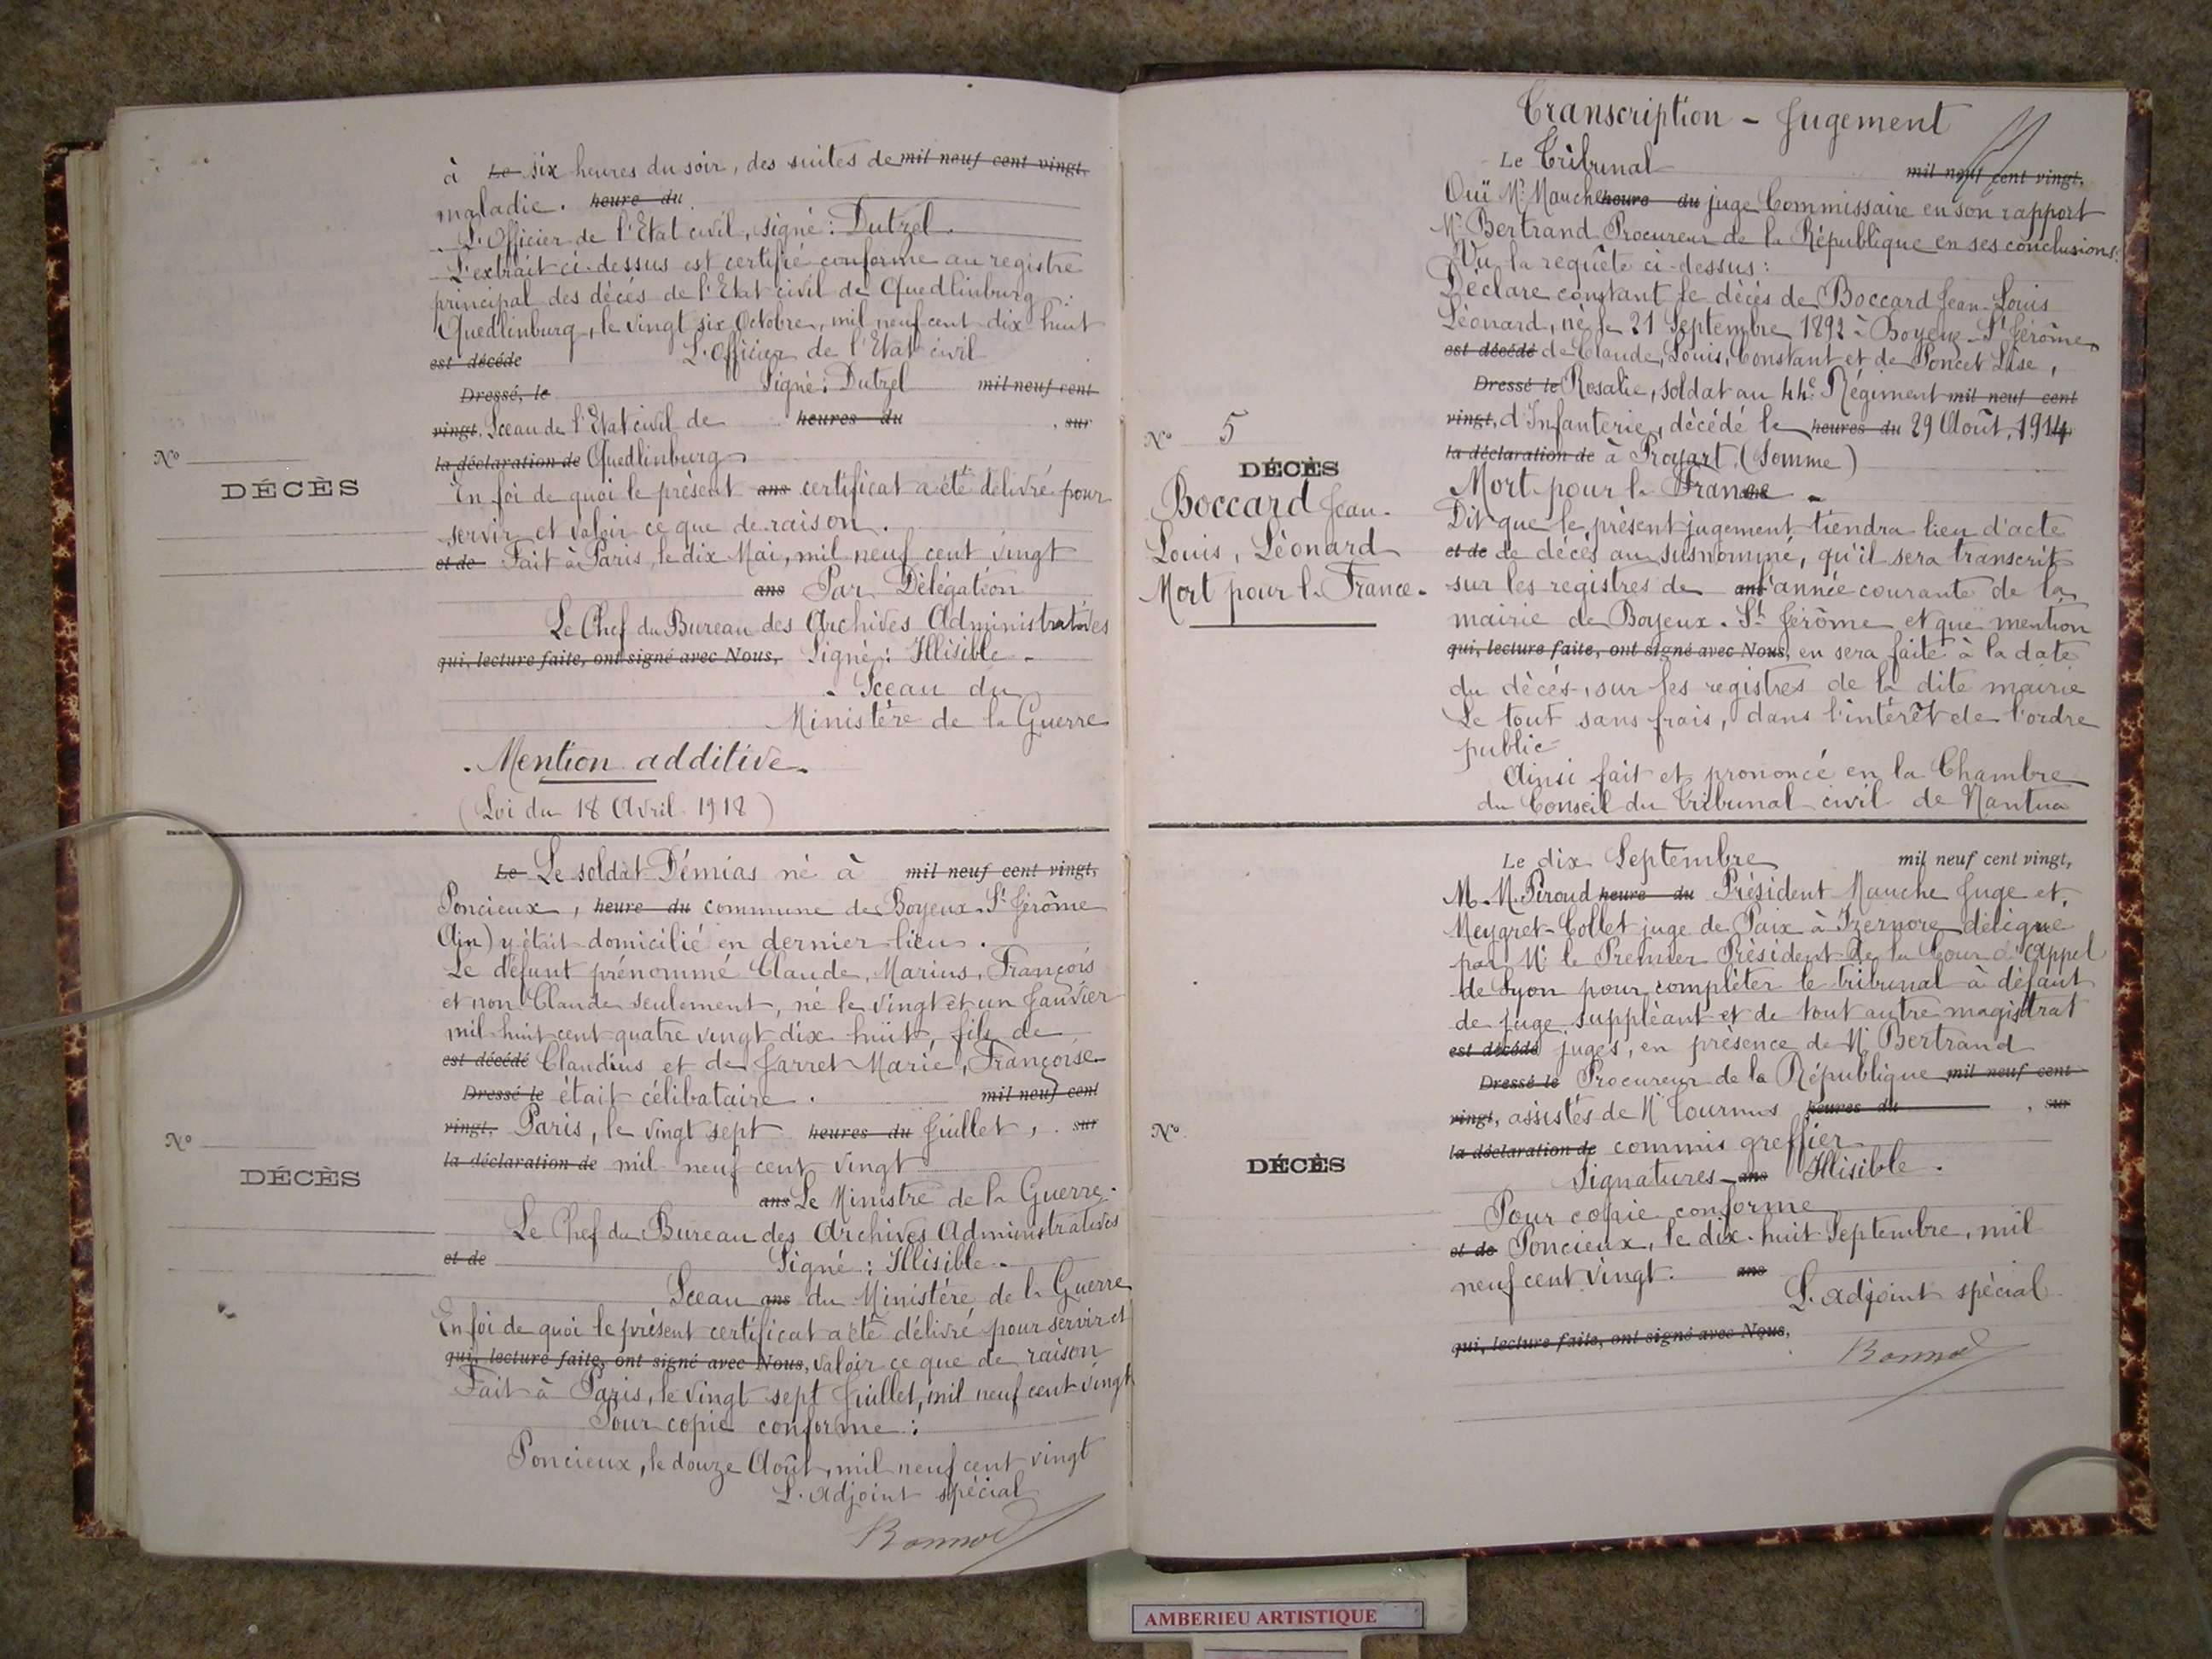 à Le six heures du soir, des suites de mil neuf cent vingt,
maladie. heure du
L'Officier de l'Etat civil, signé : Dutzel.
L'extrait ci-dessus est certifié conforme au registre
principal des décés de l'Etat civil de Quedlinburg.
Quedlinburg, le vingt six Octobre, mil neuf cent dix-huit
est décédé L'Officier de l'Etat civil
Dressé, le Signé : Dutzel mil neuf cent
vingt, Sceau de l'Etat civil de heures du , sur
la déclaration de Quedlinburg
En foi de quoi le présent ans certificat a été délivré pour
servir et valoir ce que de raison.
et de Fait à Paris, le dix Mai, mil neuf cent vingt
ans Par Délégation
Le Chef du Bureau des Archives Administratives
qui, lecture faite, ont signé avec Nous, Signé : Illisible.
Sceau du
Ministère de la Guerre
Mention additive.
(Loi du 18 Avril 1918)
N°
DÉCÈS
Le Le soldat Démias né à mil neuf cent vingt,
Poncieux, heure du commune de Boyeux-St Jérôme
Ain) y était domicilié en dernier lieu.
Le défunt prénommé Claude, Marius, François
et non Claude seulement, né le vingt et un Janvier
mil huit cent quatre vingt dix huit, fils de
est décédé Claudius et de Jarret Marie, Françoise
Dressé le était célibataire. mil neuf cent
vingt, Paris, le vingt sept heures du Juillet, . sur
la déclaration de mil neuf cent vingt
ans Le Ministre de la Guerre.
Le Chef du Bureau des Archives Administratives
et de Signé : Illisible.
Sceau ans du Ministère de la Guerre
En foi de quoi le présent certificat a été délivré pour servir et
qui, lecture faite, ont signé avec Nous, valoir ce que de raison
Fait à Paris, le vingt sept Juillet, mil neuf cent vingt
Pour copie conforme :
Poncieux, le douze Août, mil neuf cent vingt
L'adjoint spécial
Bonnod
N°
DÉCÈS
Transcription - Jugement
Le Tribunal mil neuf cent vingt,
Ouï Mr Mauche heure du juge Commissaire en son rapport
Mr Bertrand Procureur de la République en ses conclusions:
Vu la requête ci-dessus :
Déclare constant le décès de Boccard Jean-Louis
Léonard, né le 21 Septembre 1892 à Boyeux-St Jérôme
est décédé de Claude, Louis, Constant et de Poncet Lise,
Dressé le Rosalie, soldat au 44e Régiment mil neuf cent
vingt, d'Infanterie, décédé le heures du 29 Août, 1914
la déclaration de à Proyart (Somme)
Mort pour la France
Dit que le présent jugement tiendra lieu d'acte
et de de décès au susnommé, qu'il sera transcrit
sur les registres de ans l'année courante de la
mairie de Boyeux-St Jérôme et que mention
qui, lecture faite, ont signé avec Nous, en sera faite à la date
du décès, sur les registres de la dite mairie
Le tout sans frais, dans l'intérêt de l'ordre
public
Ainsi fait et prononcé en la Chambre
du Conseil du Tribunal civil de Nantua
N° 5
DÉCÈS
Boccard Jean-
Louis, Léonard
Mort pour la France.
Le dix Septembre mil neuf cent vingt,
M. M. Piroud heure du Président Mauche Juge et
Meygret-Collet juge de Paix à Izernore délégué
par Mr le Premier Président de la Cour d'Appel
de Lyon pour compléter le tribunal à défaut
de juge suppléant et de tout autre magistrat
est décédé juges, en présence de Mr Bertrand
Dressé le Procureur de la République mil neuf cent
vingt, assistés de Mr Tournus heures du , sur
la déclaration de commis greffier
Signatures ans Illisible.
Pour copie conforme
et de Poncieux, le dix-huit Septembre, mil
neuf cent vingt. ans
L'adjoint spécial
qui, lecture faite, ont signé avec Nous,
Bonnod
N°
DÉCÈS
AMBERIEU ARTISTIQUE